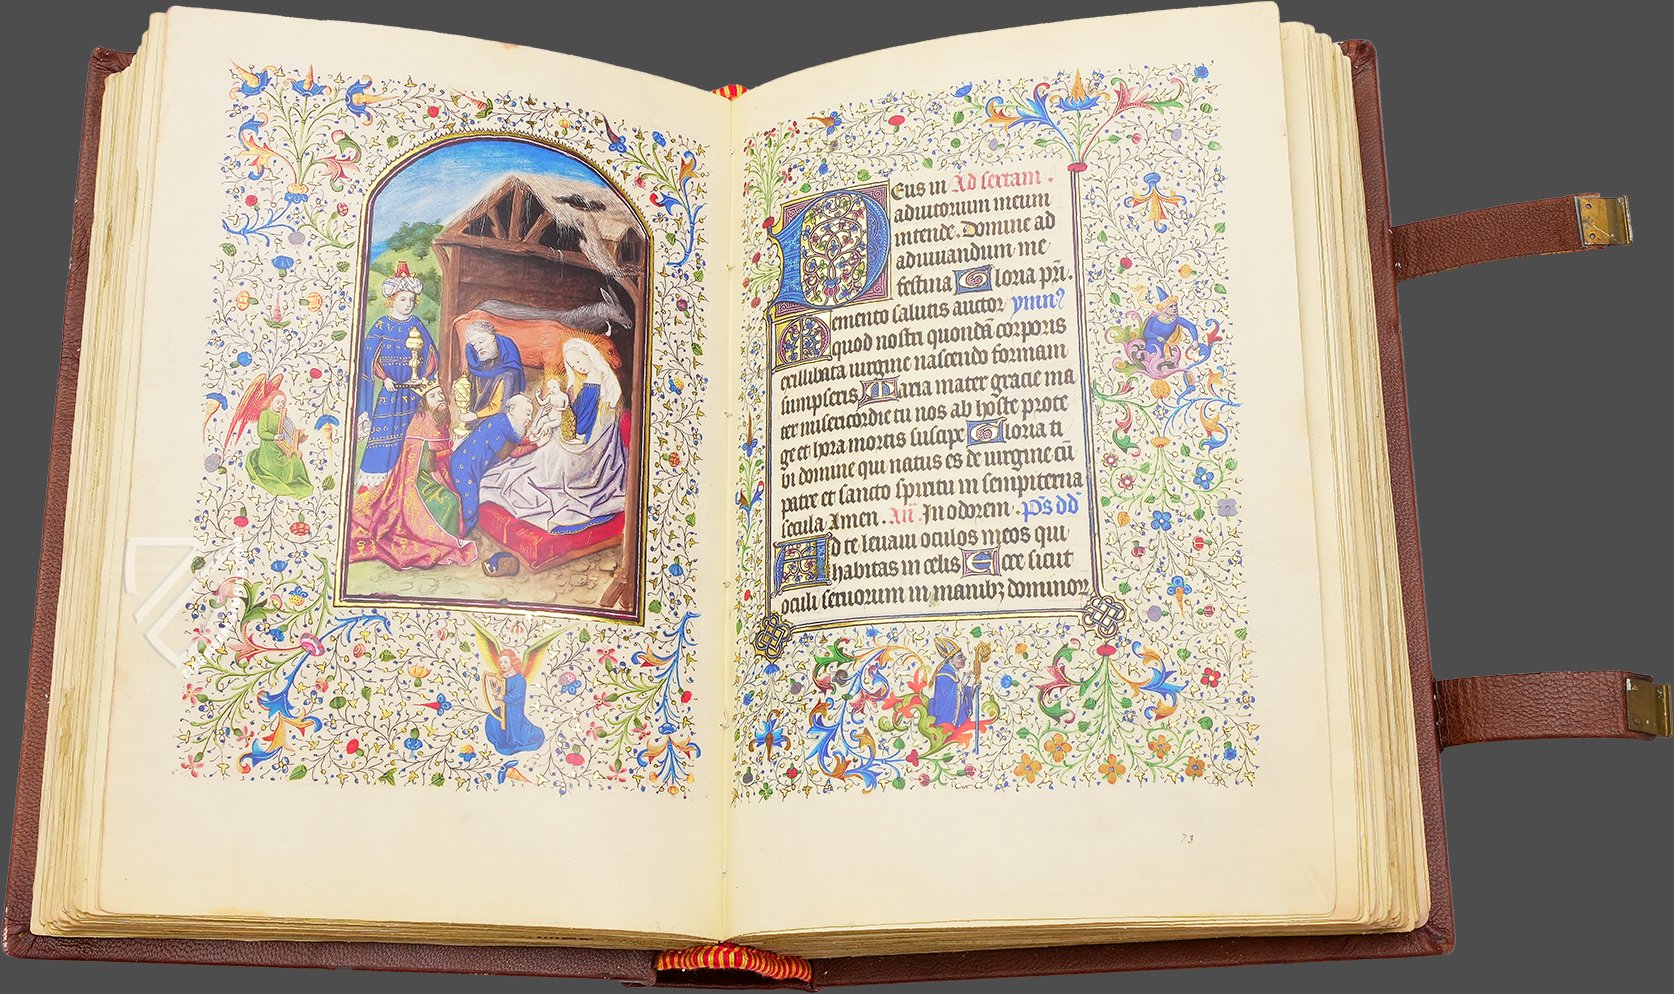 Deus in Ad sextam.
adiutorium meum
intende. Domine ad
adiuuandum me
festina Gloria pr̄i.
Memento salutis auctor ymn⁹
quod nostri quondā corporis
ex illibata uirgine nascendo formam
sumpseris Maria mater gracie ma
ter misericordie tu nos ab hoste prote
ge et hora mortis suscipe Gloria ti
bi domine qui natus es de uirgine cū
patre et sancto spiritu in sempiterna
secula Amen. An̄. In odorem. Ps̄ dd̄
Ad te leuaui oculos meos qui
habitas in celis Ecce sicut
oculi seruorum in manibꝫ dominoꝝ
73